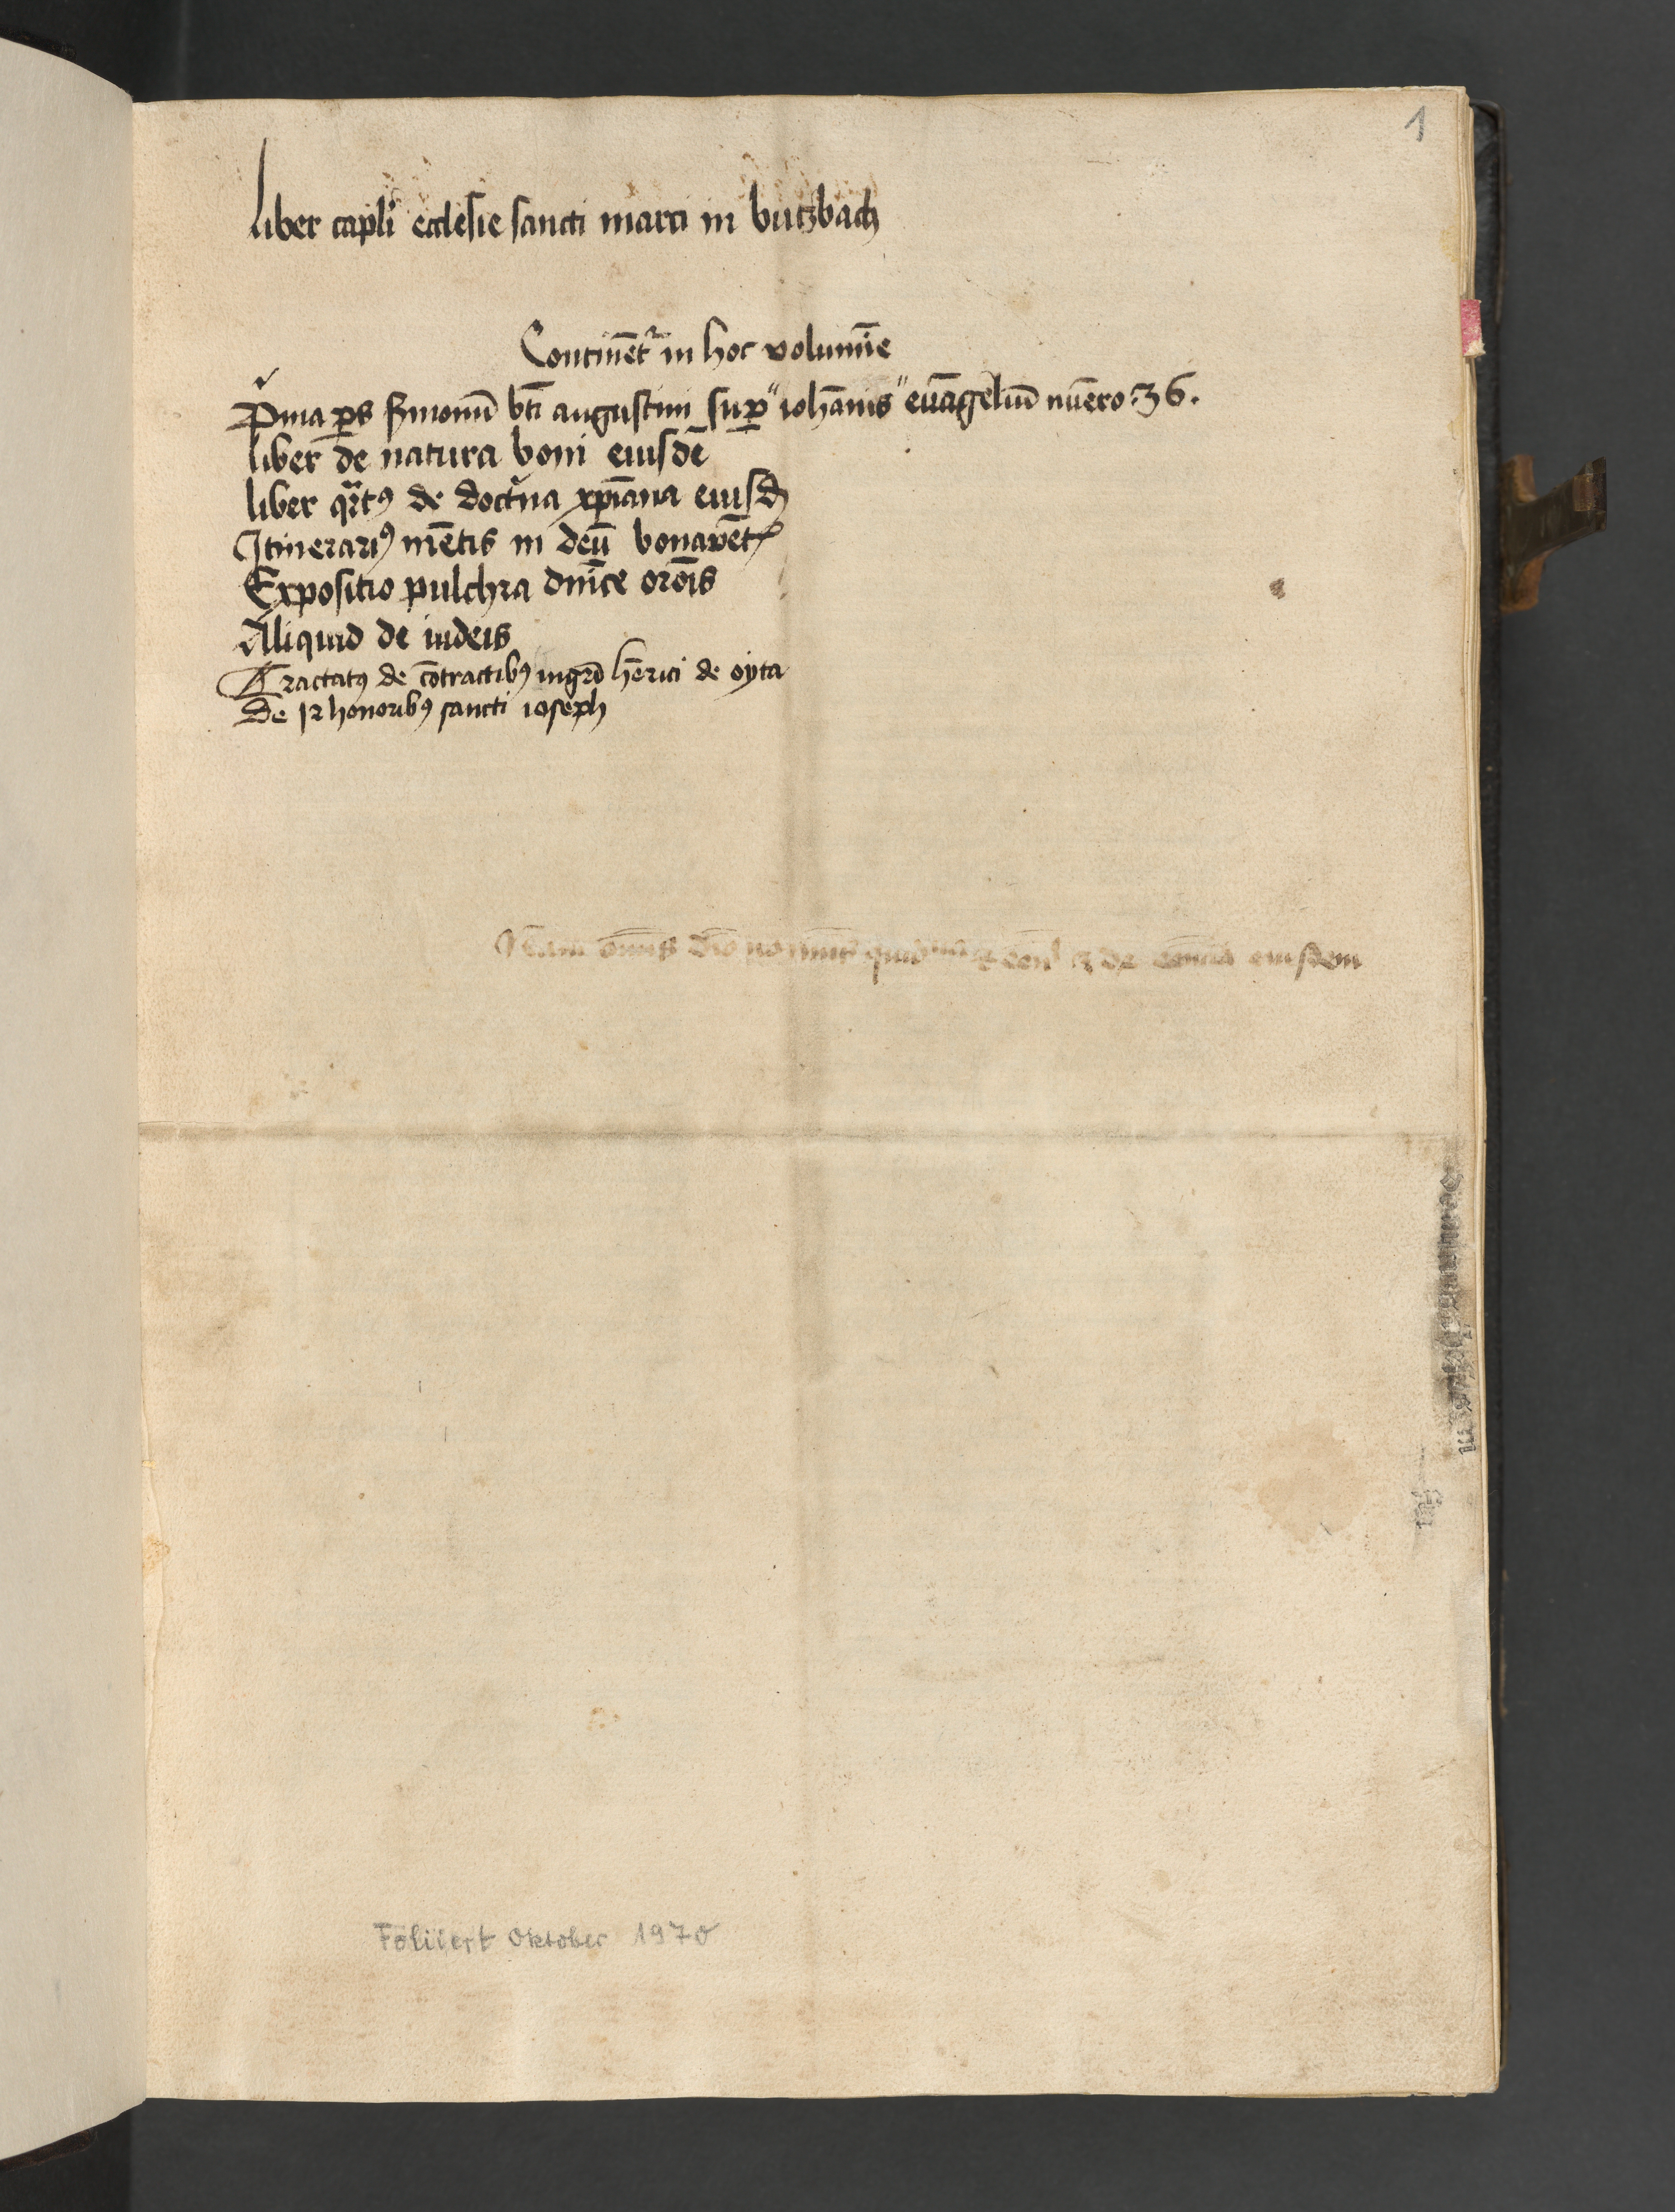 1
Liber capl'i ecclesie sancti marci in butzbach
Continēt^r in hoc volumīe
P^ima ꝑs ẜmonū bt̄i augustini suꝑ "iohānis" euāgeliū nūero 36.
liber de natura boni eiusdē
liber q^artꝰ de doct^ina xp̄iana eiusd
Itinerariꝰ mētis in deū bonauēt
Expositio pulchra dn̄ice or̄onis
Aliquid de iudeis
Tractatꝰ de cōtractibꝰ mgr̄i hērici de oyta
De 12 honoribꝰ sancti ioseph
eiusdem
Foliiert Oktober 1970